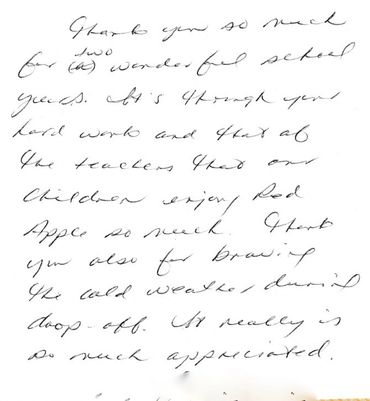 Thank you so much
for two (a) wonderful school
years. It's through your
hard work and that of
the teachers that our
children enjoy Red
Apple so much. Thank
you also for braving
the cold weather during
drop-off. It really is
so much appreciated.